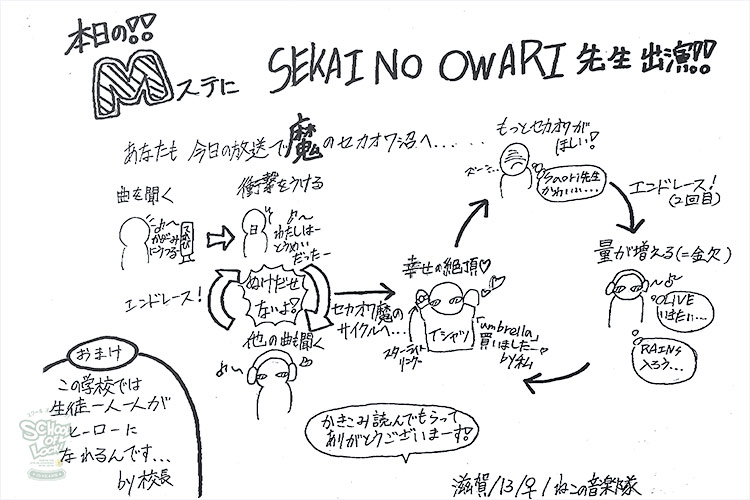 本日の!!
Mステに
SEKAI NO OWARI 先生 出演!!
あなたも 今日の放送で魔のセカオワ沼へ......
曲を聞く
♪〜
かがみ
にうつる
スぬび
衝撃をうける
♪〜
わたしはー
とうめい
だったー
エンドレース!
ぬけだせ
ないよ!
他の曲も聞く
セカオワ魔の
サイクルへ...
幸せの絶頂♡
Tシャツ
スターライト
リング
「umbrella」
買いましたー
by私
もっとセカオワが
ほしい!
ズーン...
Saori先生
かわいい...
エンドレース!
(2回目)
量が増える(=金欠)
OLIVE
いきたい...
RAINs
入ろう...
おまけ
この学校では
生徒一人一人が
ヒーローに
なれるんです...
by校長
SCHOOL
OF
LOCK!
かきこみ読んでもらって
ありがとうございまーす!
滋賀/13/♀/ねこの音楽隊